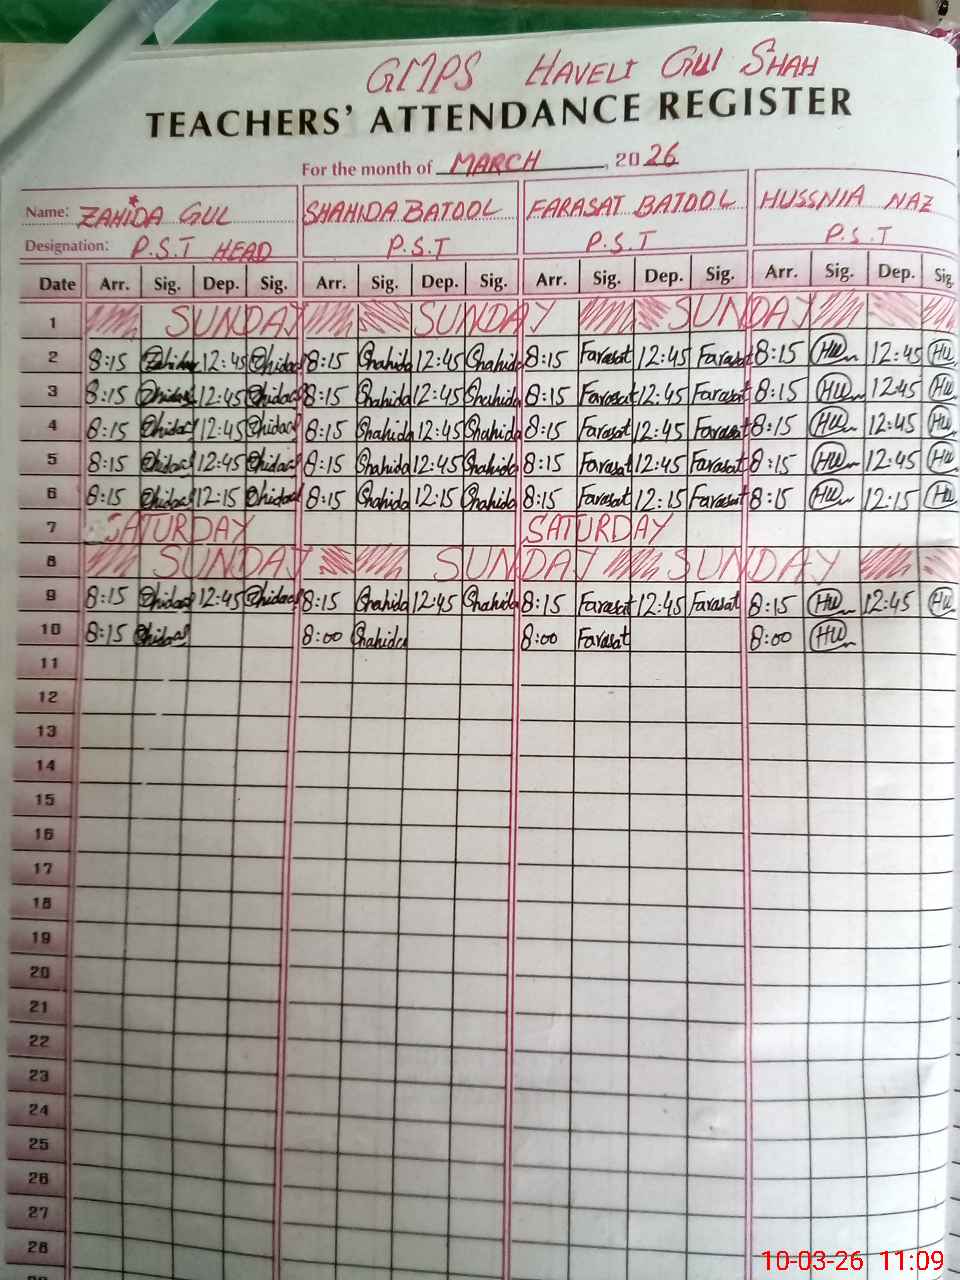 GMPS HAVELI GUL SHAH
TEACHERS' ATTENDANCE REGISTER
For the month of MARCH, 2026
Name: ZAHIDA GUL SHAHIDA BATOOL FARASAT BATOOL HUSSNIA NAZ
Designation: P.S.T HEAD P.S.T P.S.T P.S.T
Date Arr. Sig. Dep. Sig. Arr. Sig. Dep. Sig. Arr. Sig. Dep. Sig. Arr. Sig. Dep. Sig.
1 SUNDAY SUNDAY SUNDAY
2 8:15 12:45 8:15 Shahida 12:45 Shahida 8:15 Farasat 12:45 Farasat 8:15 HU 12:45 HU
3 8:15 12:45 8:15 Shahida 12:45 Shahida 8:15 Farasat 12:45 Farasat 8:15 HU 12:45 HU
4 8:15 12:45 8:15 Shahida 12:45 Shahida 8:15 Farasat 12:45 Farasat 8:15 HU 12:45 HU
5 8:15 12:45 8:15 Shahida 12:45 Shahida 8:15 Farasat 12:45 Farasat 8:15 HU 12:45 HU
6 8:15 12:15 8:15 Shahida 12:15 Shahida 8:15 Farasat 12:15 Farasat 8:15 HU 12:15 HU
7 SATURDAY SATURDAY
8 SUNDAY SUNDAY SUNDAY
9 8:15 12:45 8:15 Shahida 12:45 Shahida 8:15 Farasat 12:45 Farasat 8:15 HU 12:45 HU
10 8:15 8:00 Shahida 8:00 Farasat 8:00 HU
11
12
13
14
15
16
17
18
19
20
21
22
23
24
25
26
27
28
10-03-26 11:09